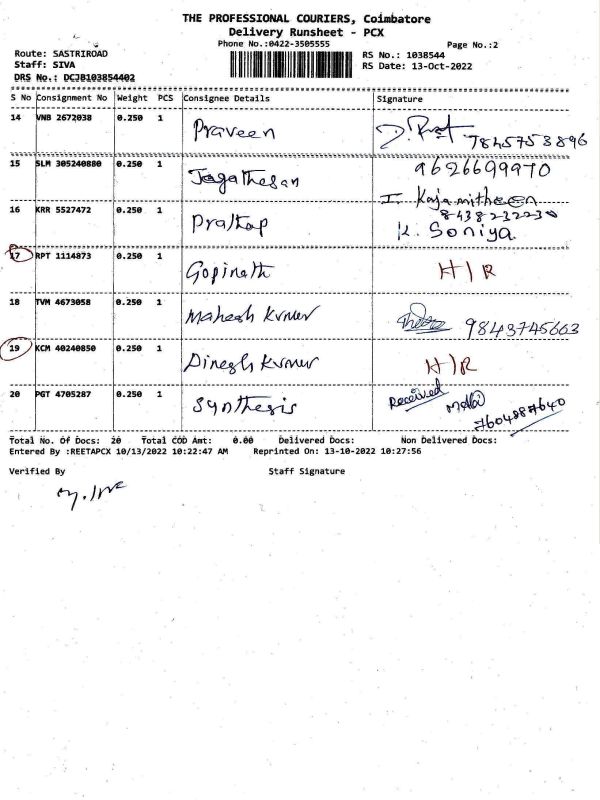 THE PROFESSIONAL COURIERS, Coimbatore
Delivery Runsheet - PCX
Phone No.:0422-3505555 Page No.:2
Route: SASTRIROAD RS No.: 1038544
Staff: SIVA RS Date: 13-Oct-2022
DRS No.: DCJB103854402
S No Consignment No Weight PCS Consignee Details Signature
14 VNB 2672038 0.250 1 Praveen 7845753896
15 SLM 305240880 0.250 1 Jagathesan 9626699970
I. Kajamitheen
16 KRR 5527472 0.250 1 Prathap 8438232230
K. Soniya
17 RPT 1114873 0.250 1 Gopinath H/R
18 TVM 4673058 0.250 1 Mahesh Kumar 9843745663
19 KCM 40240850 0.250 1 Dinesh Kumar H/R
20 PGT 4705287 0.250 1 Synthesis Received
7604887640
Total No. Of Docs: 20 Total COD Amt: 0.00 Delivered Docs: Non Delivered Docs:
Entered By :REETAPCX 10/13/2022 10:22:47 AM Reprinted On: 13-10-2022 10:27:56
Verified By Staff Signature